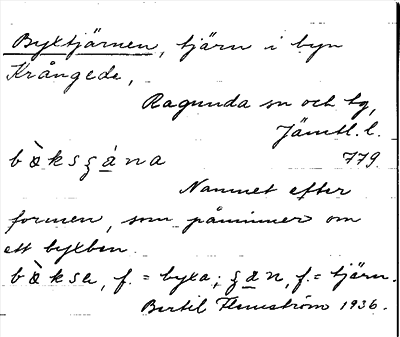 Byxtjärnen, tjärn i byn
Krångede,
Ragunda sn och tg,
Jämtl. l.
779
bòksgána
Namnet efter
formen, som påminner om
ett byxben.
bòksa, f. = byxa; gan, f. = tjärn.
Bertil Flemström 1936.